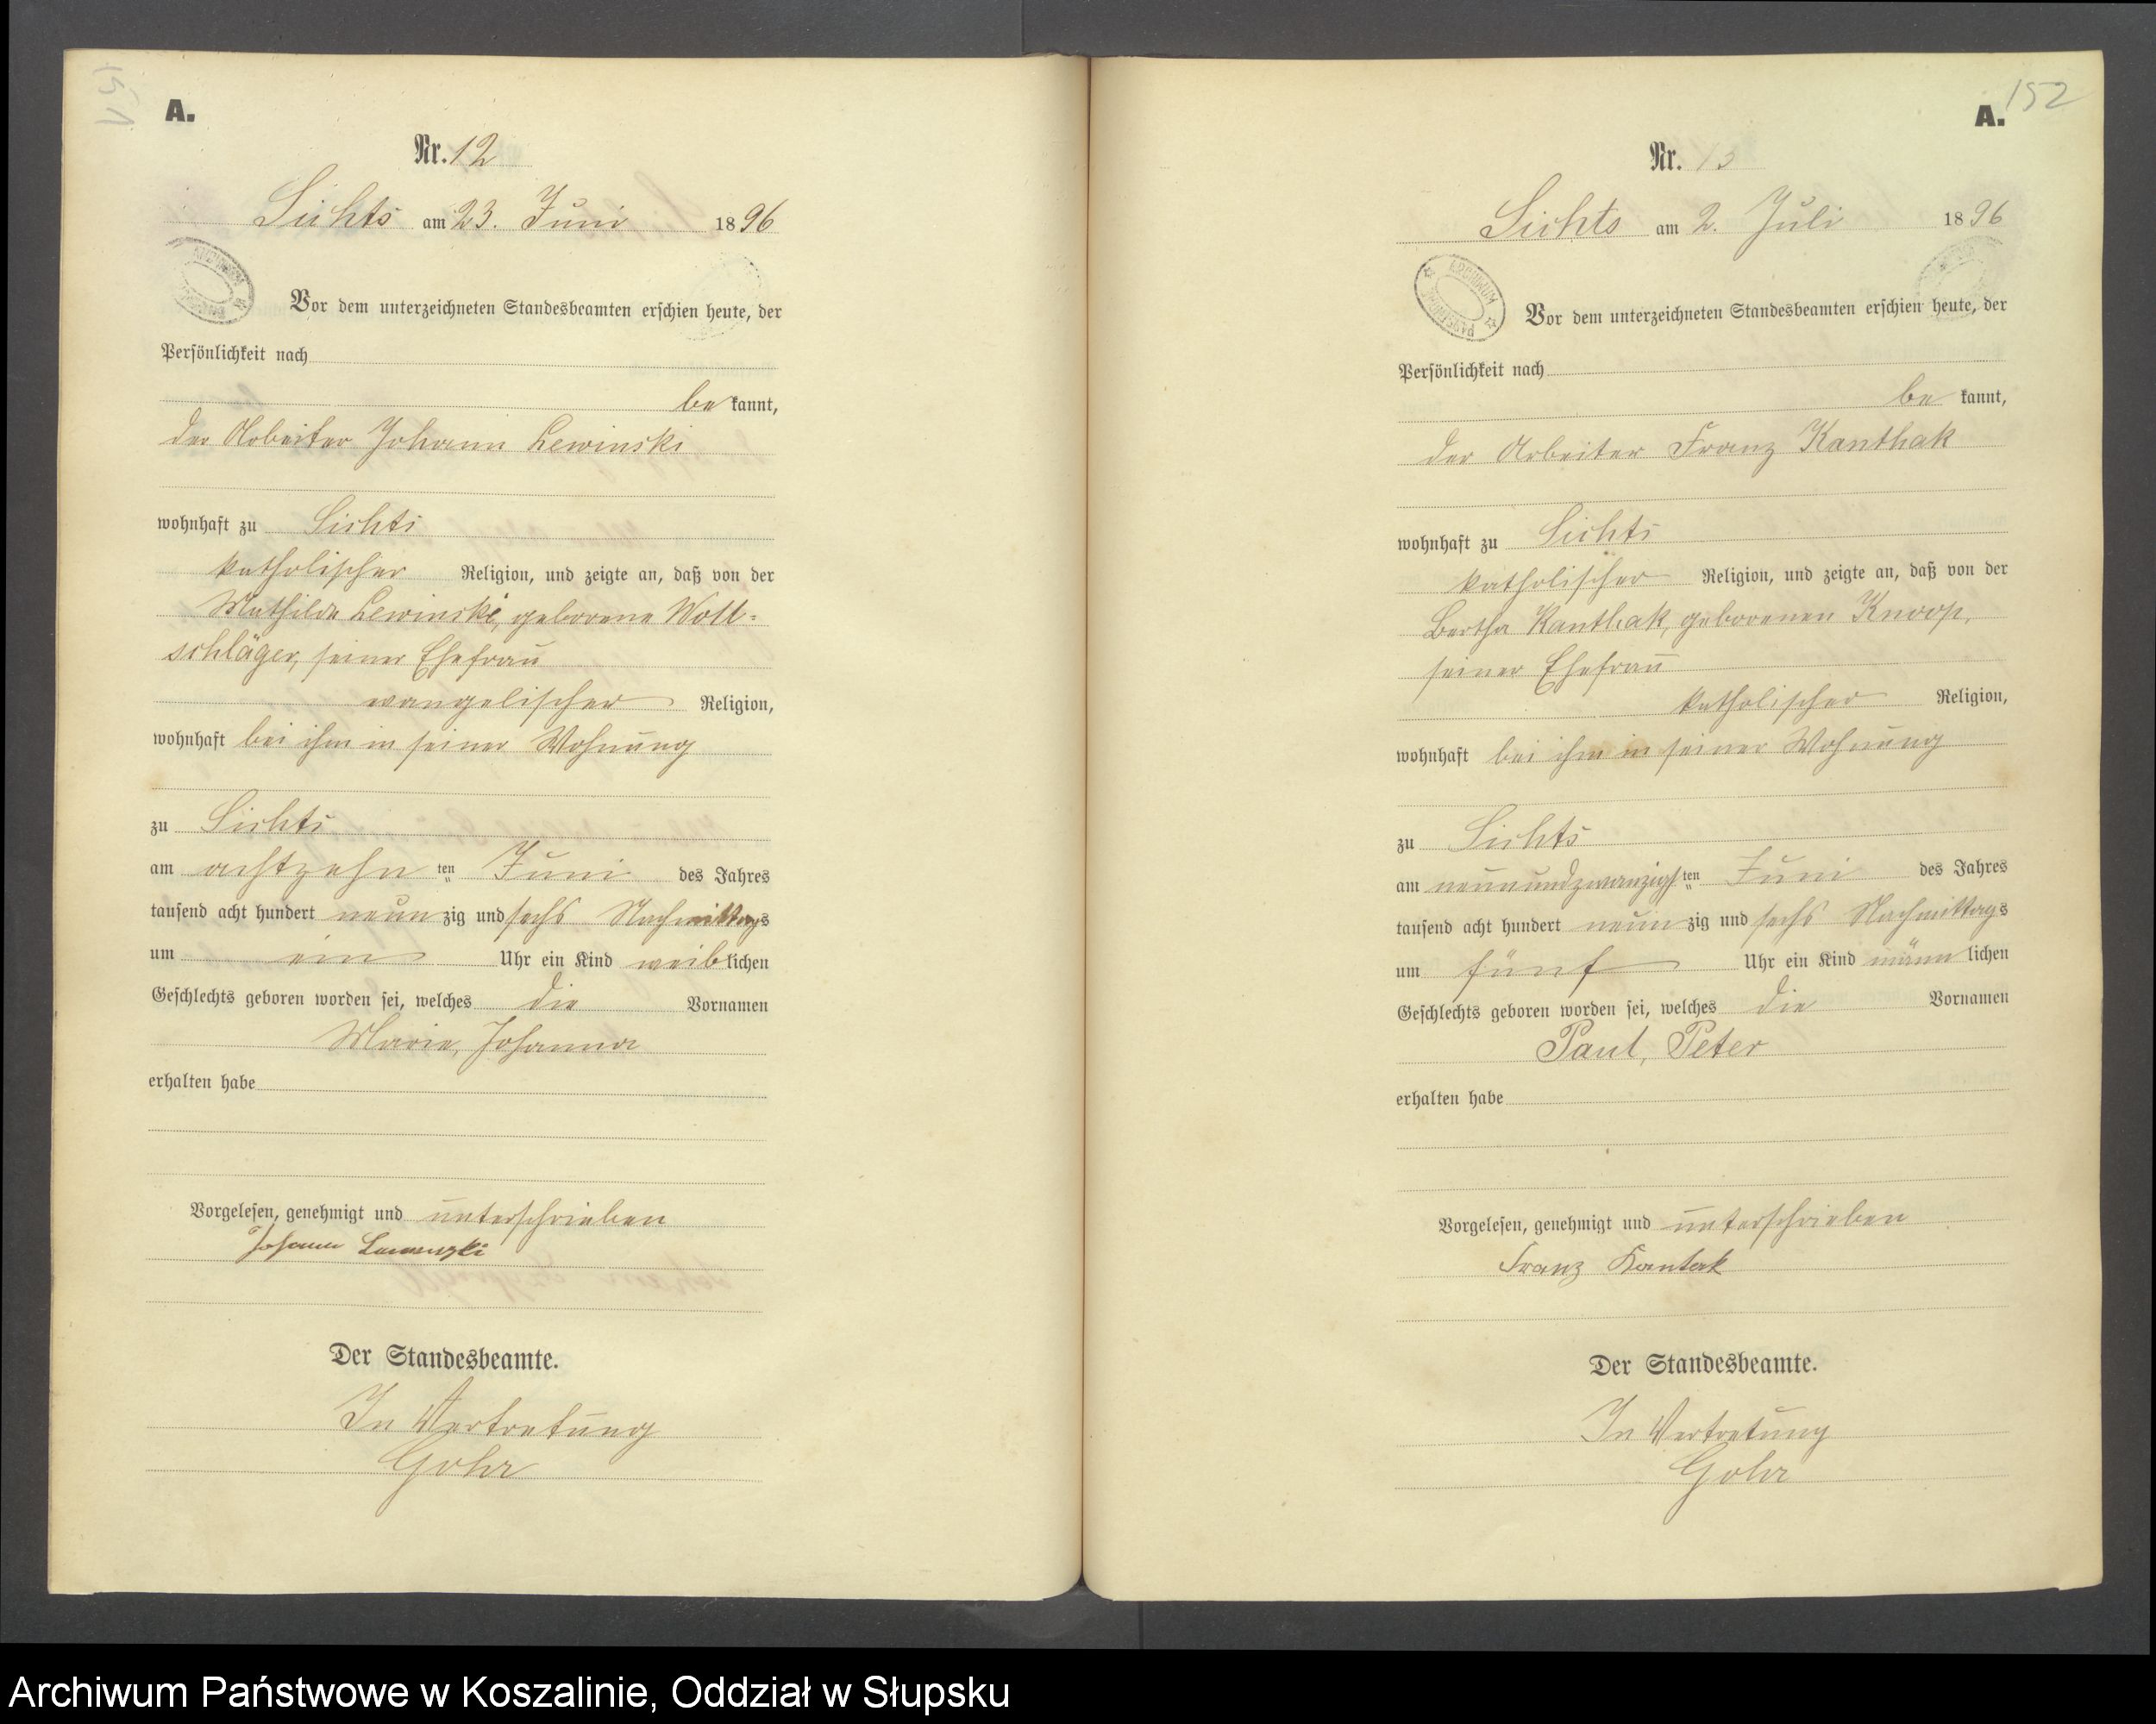 151
A.
Nr. 12
Lichts am 23. Juni 1896
Vor dem unterzeichneten Standesbeamten erschien heute, der
Persönlichkeit nach
be kannt,
der Arbeiter Johann Lewinski
wohnhaft zu Lichts
katholischer Religion, und zeigte an, daß von der
Mathilde Lewinski, geborene Woll-
schläger, seiner Ehefrau
evangelischer Religion,
wohnhaft bei ihm in seiner Wohnung
zu Lichts
am achtzehn ten Juni des Jahres
tausend acht hundert neun zig und sechs Nachmittags
um ein Uhr ein Kind weiblichen
Geschlechts geboren worden sei, welches die Vornamen
Marie, Johanna
erhalten habe
Vorgelesen, genehmigt und unterschrieben
Johann
Der Standesbeamte.
In Vertretung
Gohr
152
A.
Nr. 13
Lichts am 2. Juli 1896
ARCHIWUM PAŃSTWOWE
Vor dem unterzeichneten Standesbeamten erschien heute, der
Persönlichkeit nach
be kannt,
der Arbeiter Franz Kanthak
wohnhaft zu Lichts
katholischer Religion, und zeigte an, daß von der
Bertha Kanthak, geborenen Knoop,
seiner Ehefrau
katholischer Religion,
wohnhaft bei ihm in seiner Wohnung
zu Lichts
am neunundzwanzigs ten Juni des Jahres
tausend acht hundert neun zig und sechs Nachmittags
um fünf Uhr ein Kind männ lichen
Geschlechts geboren worden sei, welches die Vornamen
Paul, Peter
erhalten habe
Vorgelesen, genehmigt und unterschrieben
Franz Kantak
Der Standesbeamte.
In Vertretung
Gohr
Archiwum Państwowe w Koszalinie, Oddział w Słupsku